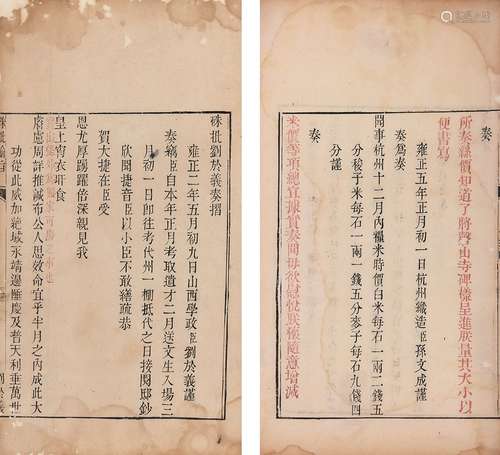 奏
所奏絲價知道了將聲山寺碑像呈進朕量其大小以
便書寫
雍正五年正月初一日杭州織造臣孫文成謹
奏為奏
聞事杭州十二月內糶米時價白米每石一兩二錢五
分稉子米每石一兩一錢五分麥子每石九錢四
分謹
奏
米價等項總宜據實奏聞毋欲慰悅朕懷隨意增減
硃批劉於義奏摺
雍正二年五月初九日山西學政臣劉於義謹
奏竊臣自本年正月考取遺才二月送文生入場三
月初一日即往考代州一棚抵代之日接閱邸鈔
欣聞捷音臣以小臣不敢繕疏恭
賀大捷在臣受
恩尤厚踴躍倍深親見我
皇上宵衣旰食
廟慮周詳推誠布公人思效命宜乎半月之內成此大
功從此威加絕域永靖邊陲慶及普天利垂萬世
硃批諭旨
劉於義